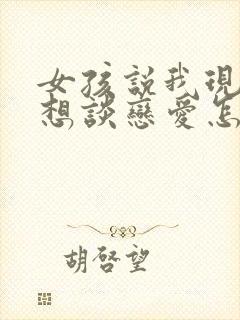 女孩說我現
想談戀愛怎
胡啓望